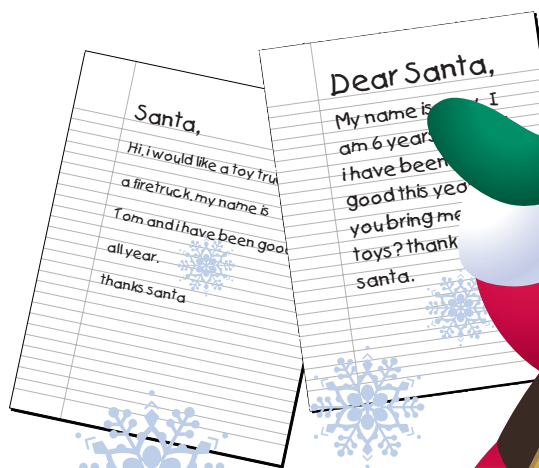 Santa,
Hi, i would like a toy
a firetruck. my name is
Tom and i have been
all year.
thanks santa
Dear Santa,
My name is I
am 6 years
i have been
good this
you bring me
toys? thank
santa.